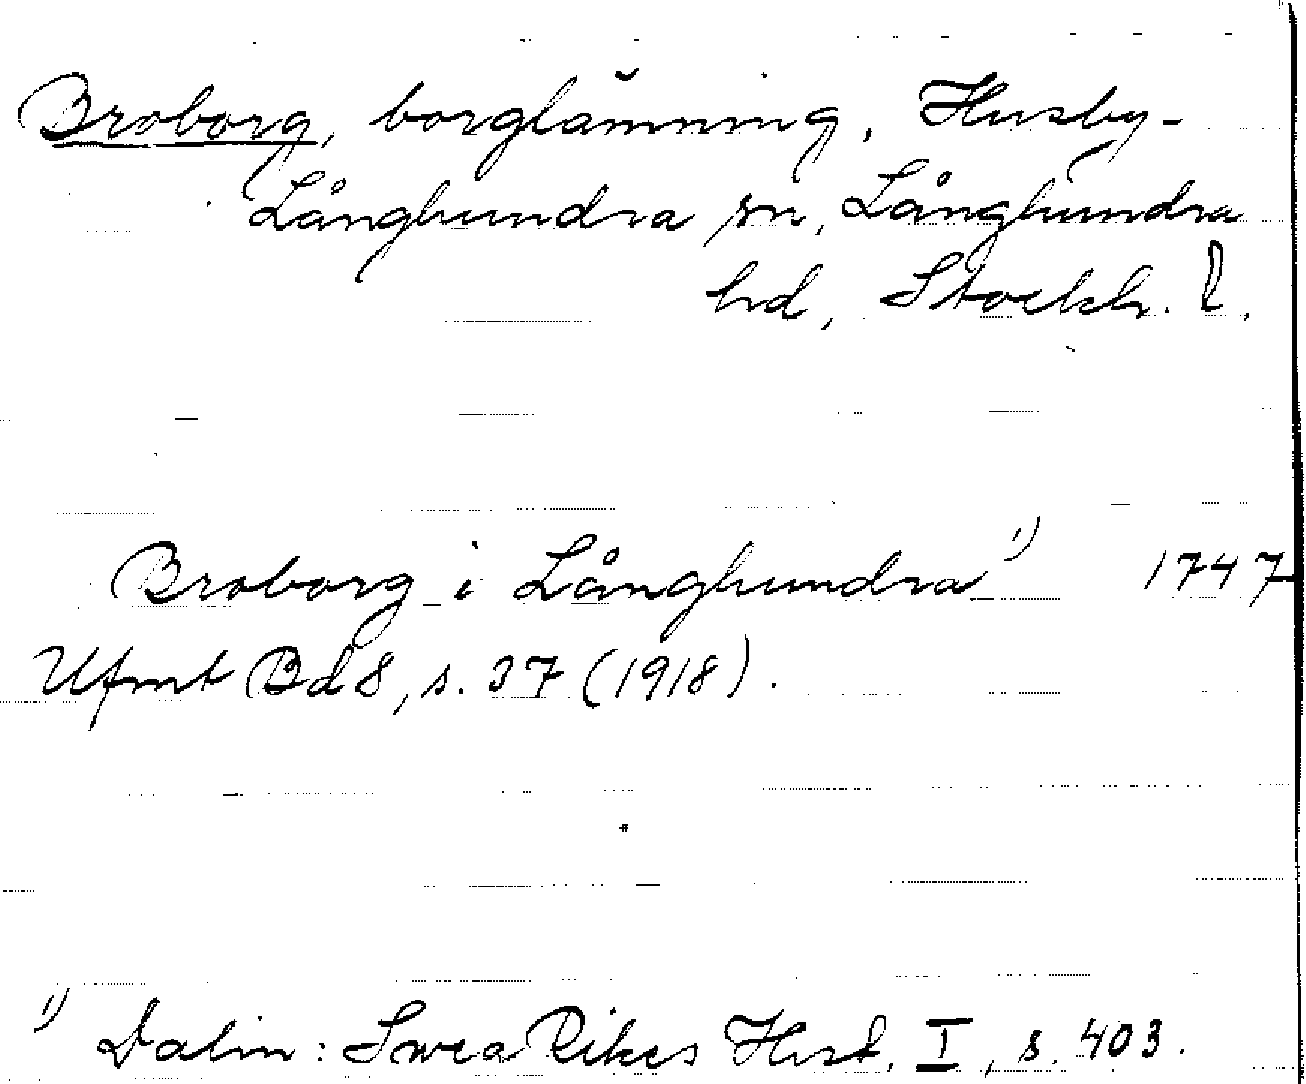 Broborg, borglämning, Husby-
Långhundra sn, Långhundra
hd, Stockh. l.
Broborg i Långhundra 1) 1747
Ufmt Bd 8, s. 37 (1918).
1) Dalin: Swea Rikes Hist. I, s. 403.